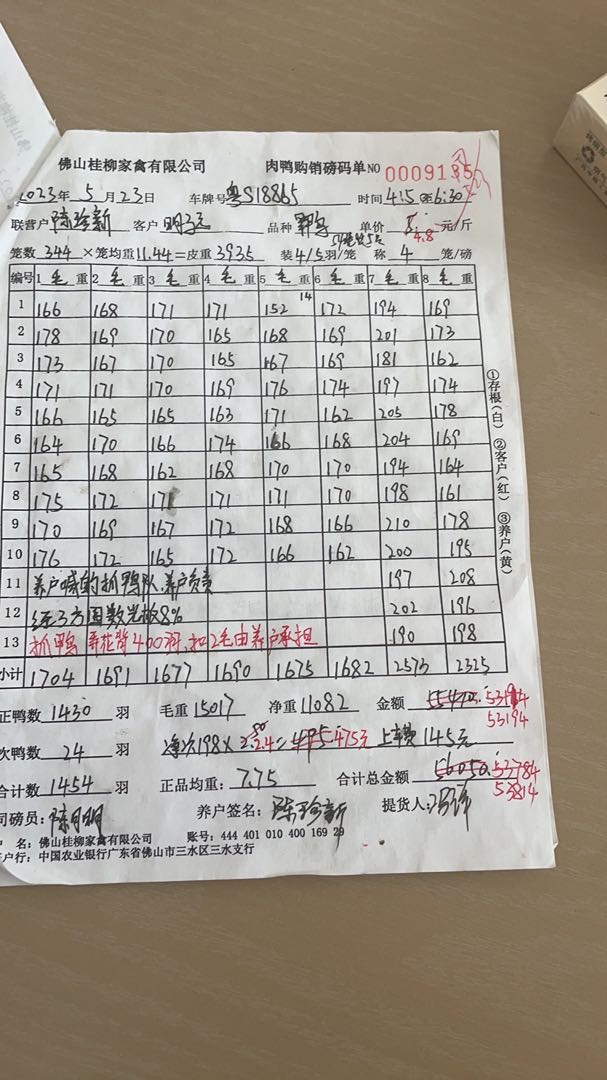 佛山桂柳家禽有限公司 肉鸭购销磅码单 NO 0009135
2023年 5 月 23日 车牌号 粤S18865 时间 4:15至6:30
联营户 陈珍新 客户 品种 单价 4.8 元/斤
笼数 344 ×笼均重 11.44 =皮重 3935 装 4/5羽/笼 称 4 笼/磅
编号 1 毛 重 2 毛 重 3 毛 重 4 毛 重 5 毛 重 6 毛 重 7 毛 重 8 毛 重
1 166 168 171 171 152 14 172 194 169
2 178 169 170 165 168 169 201 173
3 173 167 170 165 167 169 181 162
4 171 171 170 169 176 174 197 174
5 166 165 165 163 171 162 205 178
6 164 170 166 174 166 168 204 169
7 165 168 162 168 170 170 194 164
8 175 172 171 171 171 170 198 161
9 170 169 167 172 168 166 210 178
10 176 172 165 172 166 162 200 195
11 养户喊的抓鸭队,养户负责 197 208
12 经三方围数光板8% 202 196
13 抓鸭 弄花背400羽,扣2毛由养户承担 190 198
小计 1704 1691 1677 1690 1675 1682 2573 2325
正鸭数 1430 羽 毛重 15017 净重 11082 金额 53194
53194
次鸭数 24 羽 净次198× 2.4= 475元 上车费 145元
合计数 1454 羽 正品均重: 7.75 合计总金额 56050 53784
53814
司磅员: 陈月明 养户签名: 陈珍新 提货人:
户 名: 佛山桂柳家禽有限公司 账号: 444 401 010 400 169 29
开户行: 中国农业银行广东省佛山市三水区三水支行
①存根(白) ②客户(红) ③养户(黄)